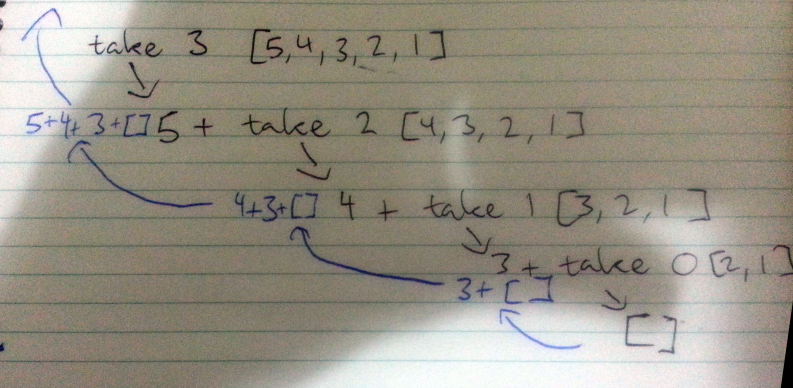 take 3 [5,4,3,2,1]
5+4+3+[] 5 + take 2 [4,3,2,1]
4+3+[] 4 + take 1 [3,2,1]
3 + take 0 [2,1]
3+[]
[]